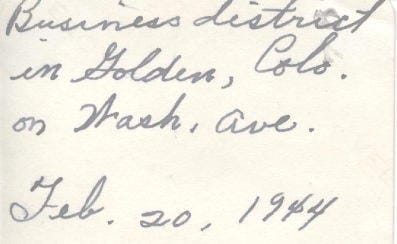 Business district
in Golden, Colo.
on Wash. Ave.
Feb. 20, 1944